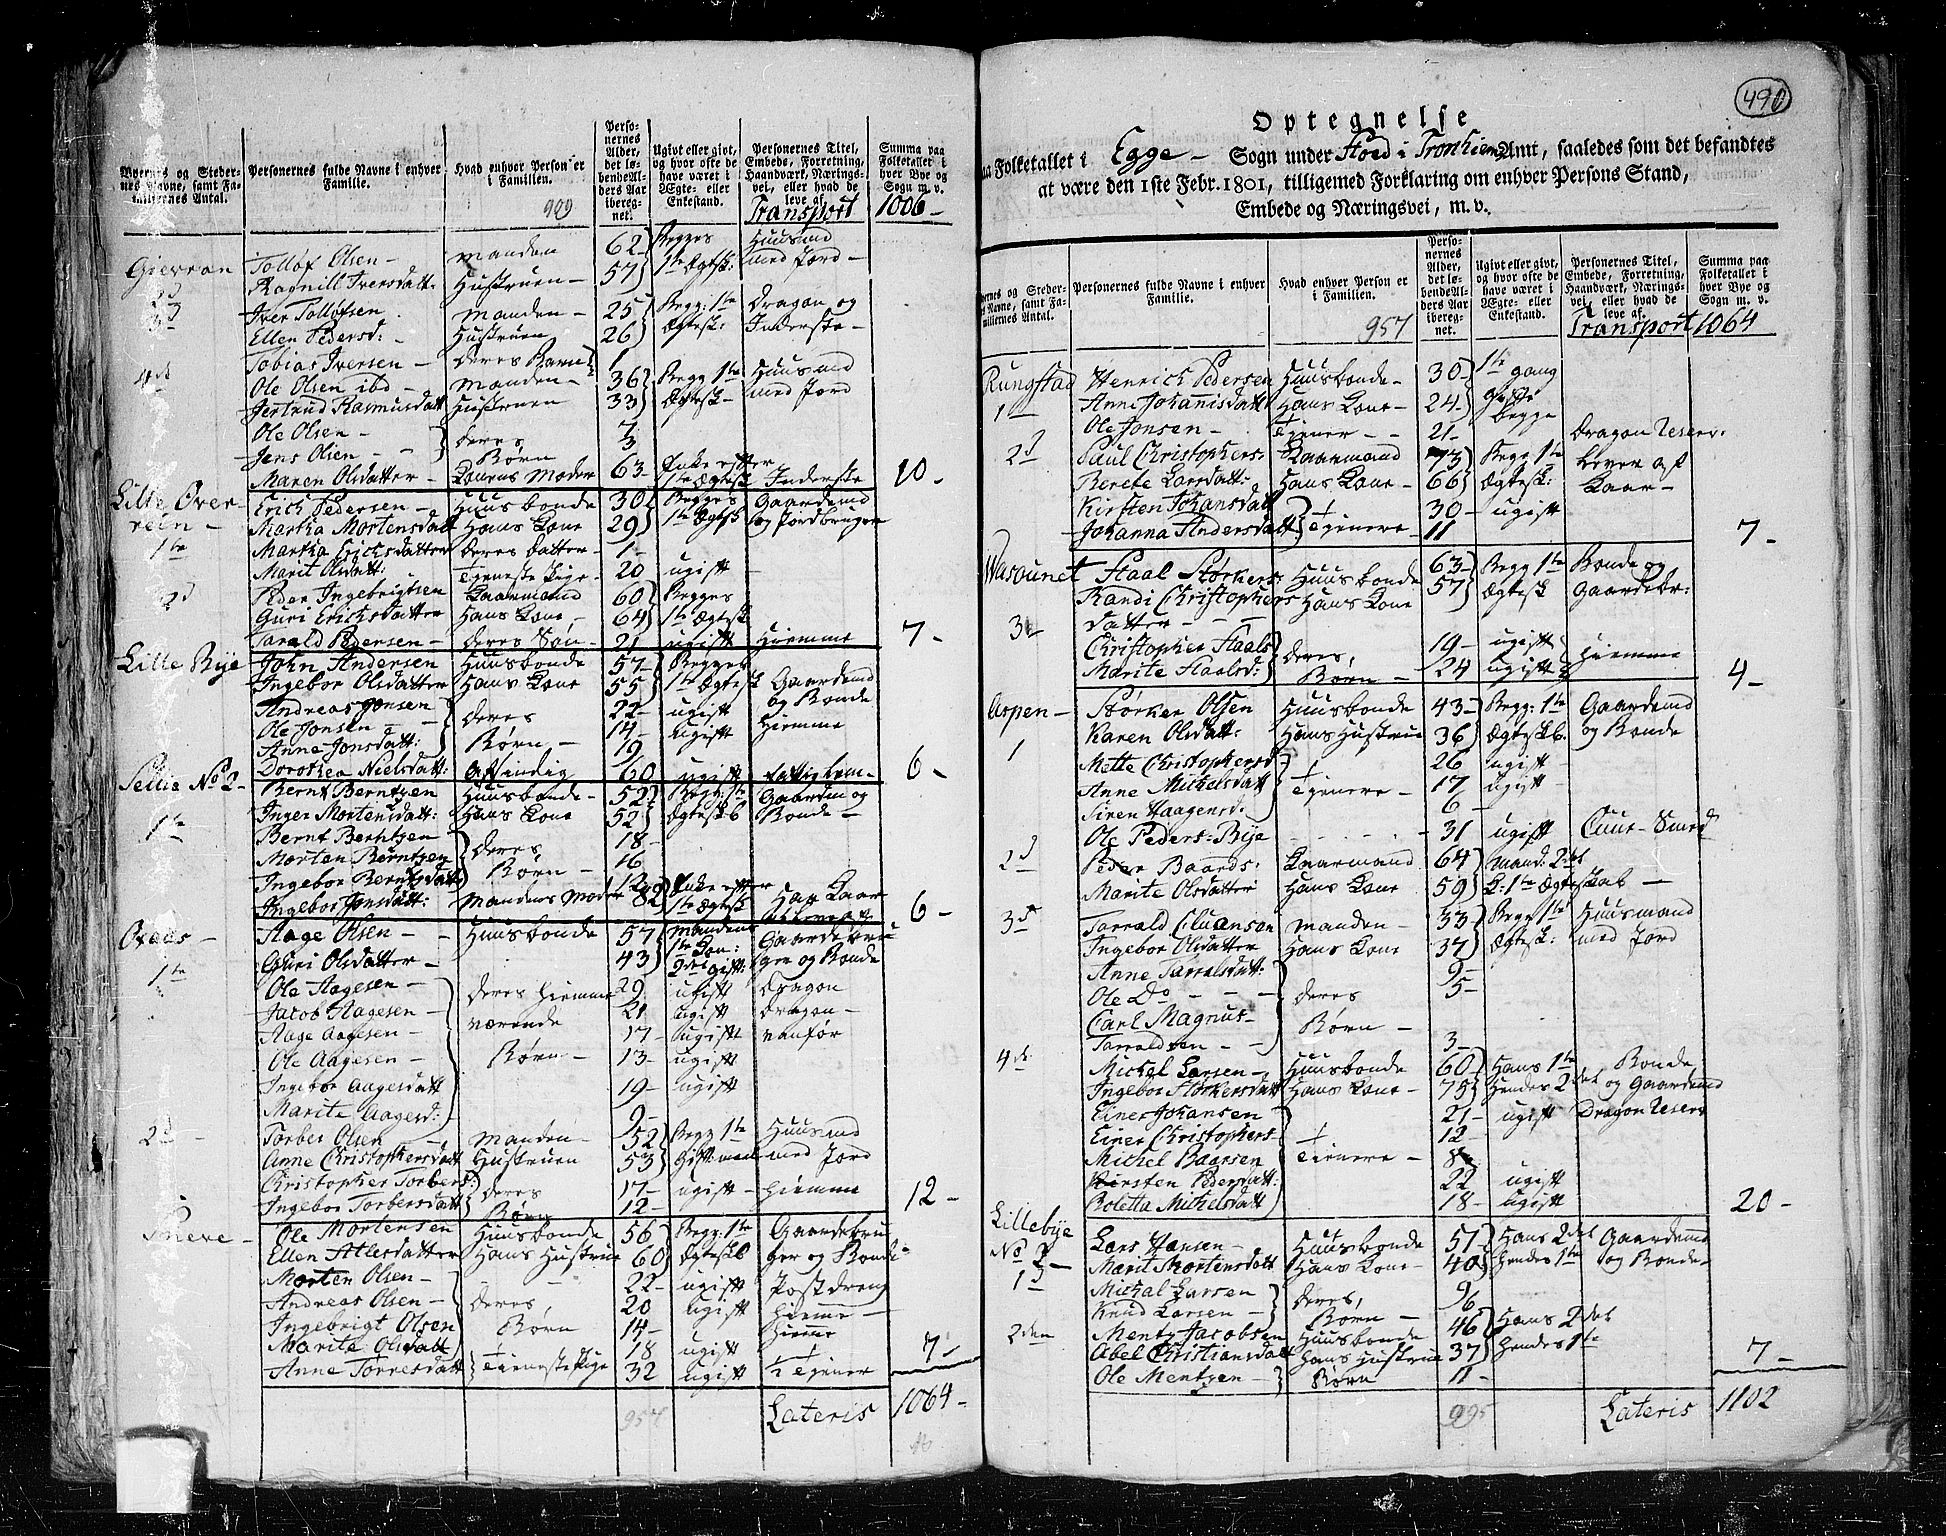 Byernes og Stedernes Navne, samt Familiernes Antal.
Personernes fulde Navne i enhver Familie.
Hvad enhver Person er i Familien.
Personernes Alder, det løbende Alders Aar iberegnet.
Ugivt eller givt, og hvor ofte de have været i Ægte- eller Enkestand.
Personernes Titel, Embede, Forretning, Haandværk, Næringsvei, eller hvad de leve af.
Summa paa Folketallet i hver Bye og Sogn m. v.
909 Transport 1006-
Gievran Tollof Olsen - Manden 62 Begges Huusmd
2d Ragnill Iversdatt: Hustruen 57 1te Ægtesk: med Jord -
3d Iver Tollofsen Manden - 25 Begg: 1te Dragon og
Ellen Pedersd: Hustruen 26 Ægtesk: Inderste -
Tobias Iversen - deres Barn 1
4de Ole Olsen ibd - Manden - 36 Begg 1te Huusmd
Jertrud Rasmusdatt Hustruen 33 Ægtesk - med Jord
Ole Olsen - deres 7
Jens Olsen - - Børn 3
Maren Olsdatter - Konens Moder 63- Enke efter 1te Ægtesk Inderste 10-
Lille Over- Erich Pedersen - Huusbonde 30 Begges Gaardemd
rein - Martha Mortensdatt Hans Kone 29 1te Ægtesk og Jordbruger
1te Martha Erichsdatter deres datter - 1-
Marit Olsdatt: Tieneste Pige - 20 ugift
2d Peder Ingebrigtsen Kaarmand 60 Begges
Guri Erichsdatter Hans Kone - 64 1te Ægtesk
Tarald Pedersen - deres Søn - 21 ugift Hiemme 7-
Lille Bye John Andersen Huusbonde 57- Begges
Ingebor Olsdatter Hans Kone 55 1te Ægtesk Gaardemd
Andreas Jonsen deres 22- ugift og Bonde
Ole Jonsen - - Børn - 14- ugift Hiemme
Anne Jonsdatt: 19
Dorothea Nielsdatt: Afsindig 60 ugift fattig lem - 6-
Sellie No 2- Bernt Berntzen Huusbonde - 52 Begg: 1te Gaardm og
1te Inger Mortensdatt: Hans Kone 52 Ægteskb Bonde -
Bernt Berntzen deres 18-
Morten Berntzen Børn - 16
Ingebor Berntzdatt 12
Ingebor Jonsdatt: Mandens Moder 82 Enke efter 1te Ægtesk Har Kaar 6-
Aage Olsen - - Huusbonde 57 Mandens 1te Gaardebru
1te Guri Olsdatter - 43 Kon: 2det gift: ger og Bonde
Ole Aagesen - deres hiemme 29 ugift Dragon
Jacob Aagesen - værende 21 ugift Dragon -
Aage Aagesen - 17- ugift vanfør
Ole Aagesen - Børn - 13- ugift
Ingebor Aagesdatt 19- ugift
Marite Aagesd: 9-
2d - Torber Olsen - Manden - 52 Begg 1te Huusmd
Anne Christophersdatt Hustruen 53 Gift med Jord
Christopher Torbers: deres 17- ugift - hiemme
Ingebor Torbersdatt Børn 12- 12-
Ole Mortensen Huusbonde 56 Begg: 1te Gaardebru
Ellen Atlesdatter Hans Hustrue 60 Ægteskb ger og Bonde
Morten Olsen - - 22- ugift Postdreng
Andreas Olsen - deres, 20 ugift hiemme
Ingebrigt Olsen Børn 14- hieme
Marite Olsdatt 18 ugift
Anne Torresdatt TienestePige 32 ugift tiener 7-
957 Lateris 1064-
490
Optegnelse
paa Folketallet i Egge - Sogn under Stod i Tronhiems Amt, saaledes som det befandtes
at være den 1ste Febr. 1801, tilligemed Forklaring om enhver Persons Stand,
Embede og Næringsvei, m. v.
Personernes fulde Navne i enhver Familie.
Hvad enhver Person er i Familien.
Personernes Alder, det løbende Alders Aar iberegnet.
Ugivt eller givt, og hvor ofte de have været i Ægte- eller Enkestand.
Personernes Titel, Embede, Forretning, Haandværk, Næringsvei, eller hvad de leve af.
Summa paa Folketallet i hver Bye og Sogn m. v.
957 Transport 1064
Rungstad Henrich Pedersen Huusbonde - 30- 1te gang
1 Anne Johannisdatt Hans Kone - 24- gifte begge
Ole Jonsen - Tiener - - 21- Dragon Reserv:
2d Paul Christophers: Kaarmand 73 Begg 1te Lever af
Berete Larsdatt: Hans Kone - 66 Ægtesk: Kaar -
Kirsten Johansdatt 30- ugift
Johanna Andersdatt Tienere - 11 7-
Wasounet Haal Størkers: Huusbonde 63- Begg 1te Bonde og
Randi Christophers Hans Kone 57 Ægtesk Gaardebr:
datter - - -
Christopher Haals deres, 19- ugift hiemme
Marite Haalsd: Børn - 24 ugift 4-
Aspen - Størker Olsen Huusbonde 43- Begg: 1te Gaardemd
1 Karen Olsdatt: Hans Hustrue 36 Ægteskb. og Bonde
Mette Christophersd 26 ugift
Anne Michelsdatt Tienere - 17 ugift
Siren Haagensd: 6-
Ole Peders: Bye 31 ugift Cuur-Smed
2d Peder Baards: Kaarmand 64 mand: 2det
Marite Olsdatter Hans Kone 59 K: 1te Ægteskab -
3d Tarrald Manden - 33 Begg 1te Huusmand
Ingebor Olsdatter Hans Kone 37 Ægtesk: med Jord
Anne Tarralsdatt: 9-
Ole Do - - - deres 5-
Carl Magnus - Børn -
Tarraldsen - - 3-
4de Michel Larsen - Huusbonde 60 Hans 1te Bonde
Ingebor Størkersdatt Hans Kone - 75 Hendes 2det og Gaardemd
Einer Johansen 21- ugift Dragon Reserv
Einer Christophers- Tienere - 12-
Michel Baarsen 8
Kirsten Pedersdatt: 22 ugift
Boletta Michelsdatt 18- ugift 20-
Lillebye Lars Hansen - Huusbonde 57 Hans 2det Gaardemd
No 2- Marit Mortensdatt Hans Kone - 40 Hendes 1te og Bonde -
1d Michal Larsen deres, 9
Knud Larsen - Børn - 6
2den Mentz Jacobsen Huusbonde 46 Hans 2det
Abel Christiansdatt Hans Hustrue 37 Hendes 1te
Ole Mentzen - Børn 11- 7-
995 Lateris 1102